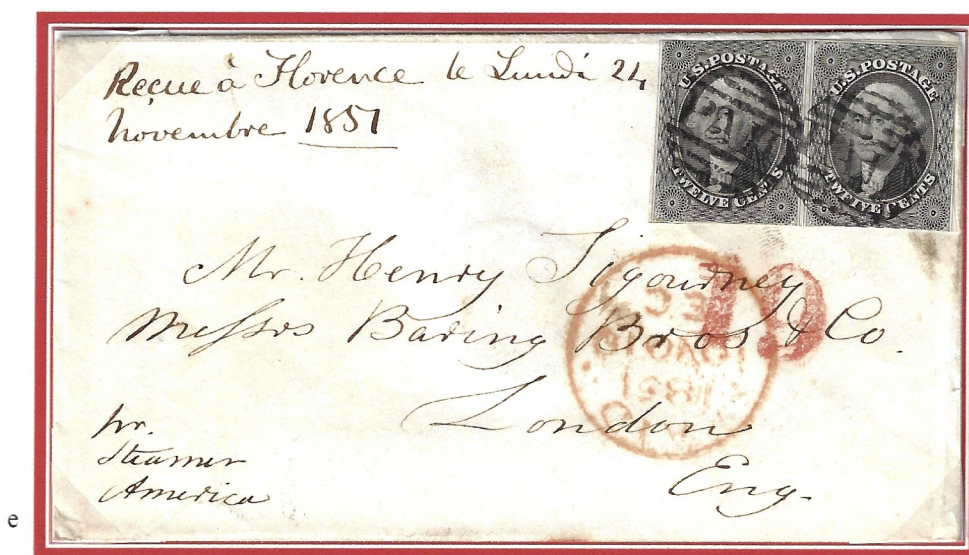 Reçue à Florence le Lundi 24
novembre 1851
U.S. POSTAGE
TWELVE CENTS
U.S. POSTAGE
TWELVE CENTS
Mr. Henry Sigourney
19
Messrs Baring Bros & Co.
London
Eng.
pr.
Steamer
America
e